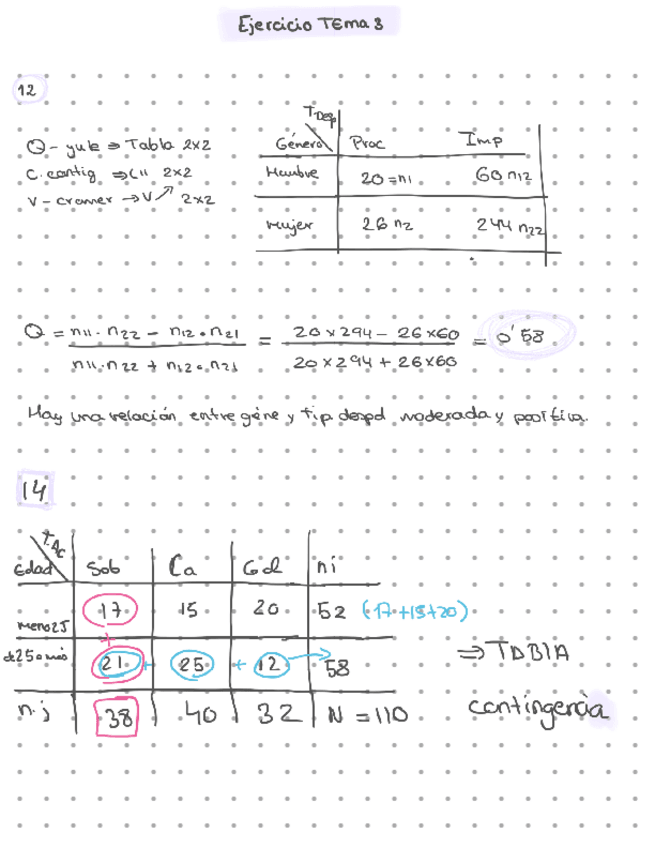 Ejercicio TEma 3
12
Q - yule ⇒ Tabla 2x2
C. contig ⇒ C11 2x2
V - cramer → V ↗ 2x2
TDesp
Género Proc Imp
Hombre 20 = n1 60 n12
Mujer 26 n2 244 n22
Q = n11 · n22 - n12 · n21 / n11 · n22 + n12 · n21 = 20 x 294 - 26 x 60 / 20 x 294 + 26 x 60 = 0'58
Hay una relación entre géne y tip despd moderada y positiva.
14
T.Ac
Edad Sob Ca Gd ni
meno25 17 15 20 52 (17+15+20)
+
de 25 o más 21 + 25 + 12 → 58
n.j 38 40 32 N = 110
⇒ TABlA
contingencia